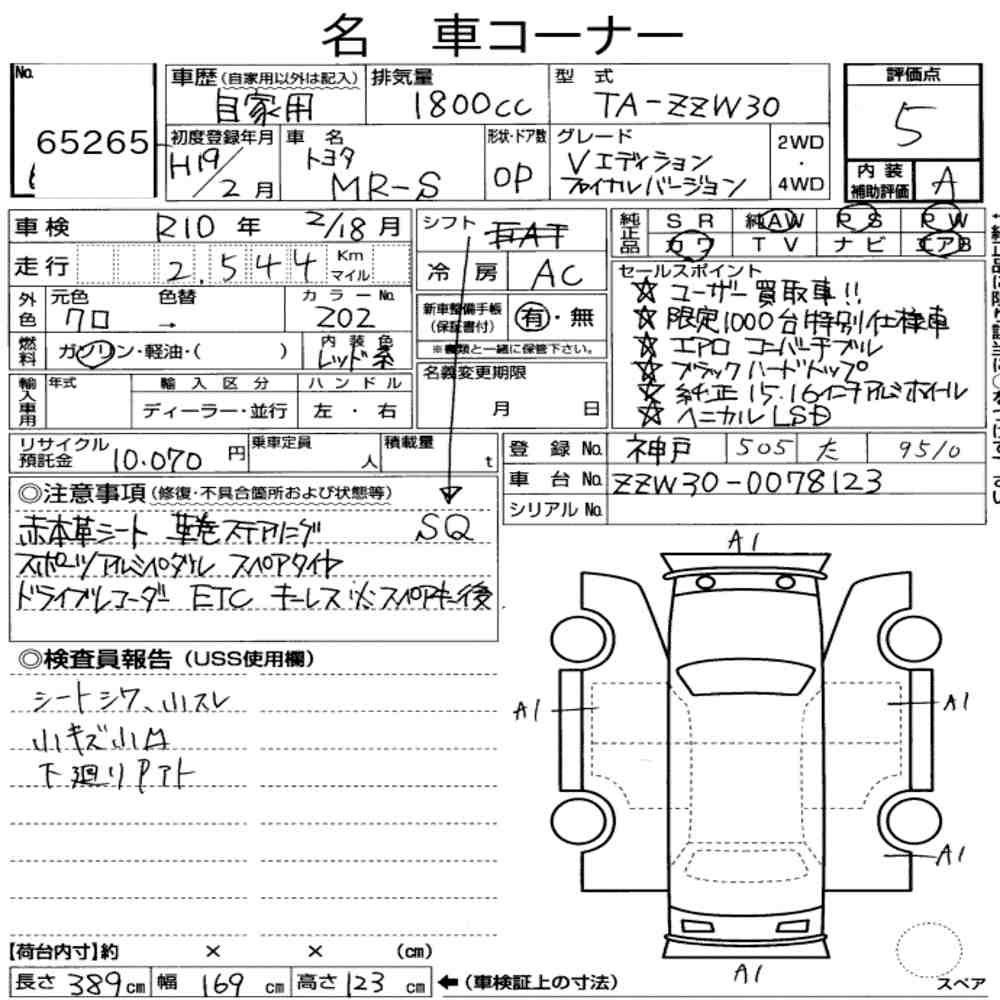 名 車コーナー
No. 65265
車歴 (自家用以外は記入) 自家用
排気量 1800cc
型 式 TA-ZZW30
評価点 5
内装補助評価 A
初度登録年月 H19/2月
車 名 トヨタ MR-S
形状・ドア数 OP
グレード Vエディション ファイナルバージョン
2WD・4WD
車検 R10年 2/18月
走行 2,544 Km マイル
シフト 五AT
冷 房 AC
純正品 SR 純AW PS PW
カワ TV ナビ エアB
外色 元色 クロ 色替 → カラーNo. 202
燃料 ガソリン・軽油・( ) 内装色 レッド系
新車整備手帳(保証書付) 有・無
※書類と一緒に保管下さい。
輸入車用 年式 輸入区分 ディーラー・並行 ハンドル 左・右
名義変更期限 月 日
セールスポイント
☆ ユーザー買取車!!
☆ 限定1000台特別仕様車
☆ エアロ コンバーチブル
☆ ブラックハードトップ
☆ 純正15.16インチアルミホイール
☆ ヘリカルLSD
リサイクル預託金 10.070円
乗車定員 人
積載量 t
登録No. 神戸 505 た 9510
車台No. ZZW30-0078123
シリアルNo.
◎注意事項(修復・不具合箇所および状態等)
赤本革シート 革巻ステアリング SQ
スポーツアルミペダル スペアタイヤ
ドライブレコーダー ETC キーレス ※スペアキー後
◎検査員報告(USS使用欄)
シートシワ、小スレ
小キズ小凹
下廻りPアト
A1
A1
A1
A1
A1
スペア
【荷台内寸】約 × × (cm)
長さ 389cm 幅 169cm 高さ 123cm ←(車検証上の寸法)